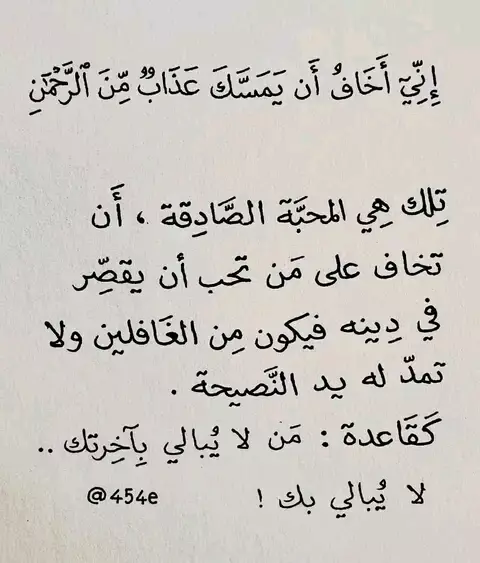 إِنِّيٓ أَخَافُ أَن يَمَسَّكَ عَذَابٌ مِّنَ ٱلرَّحْمَٰنِ
تِلك هِي المحبَّة الصَّادِقة ، أَن
تخاف على مَن تحب أن يقصِّر
في دِينِه فيكون مِن الغَافلين ولا
تمدّ له يد النَّصيحة .
كَقَاعدة : مَن لا يُبالي بِآخِرتك ..
لا يُبالي بك ! @454e